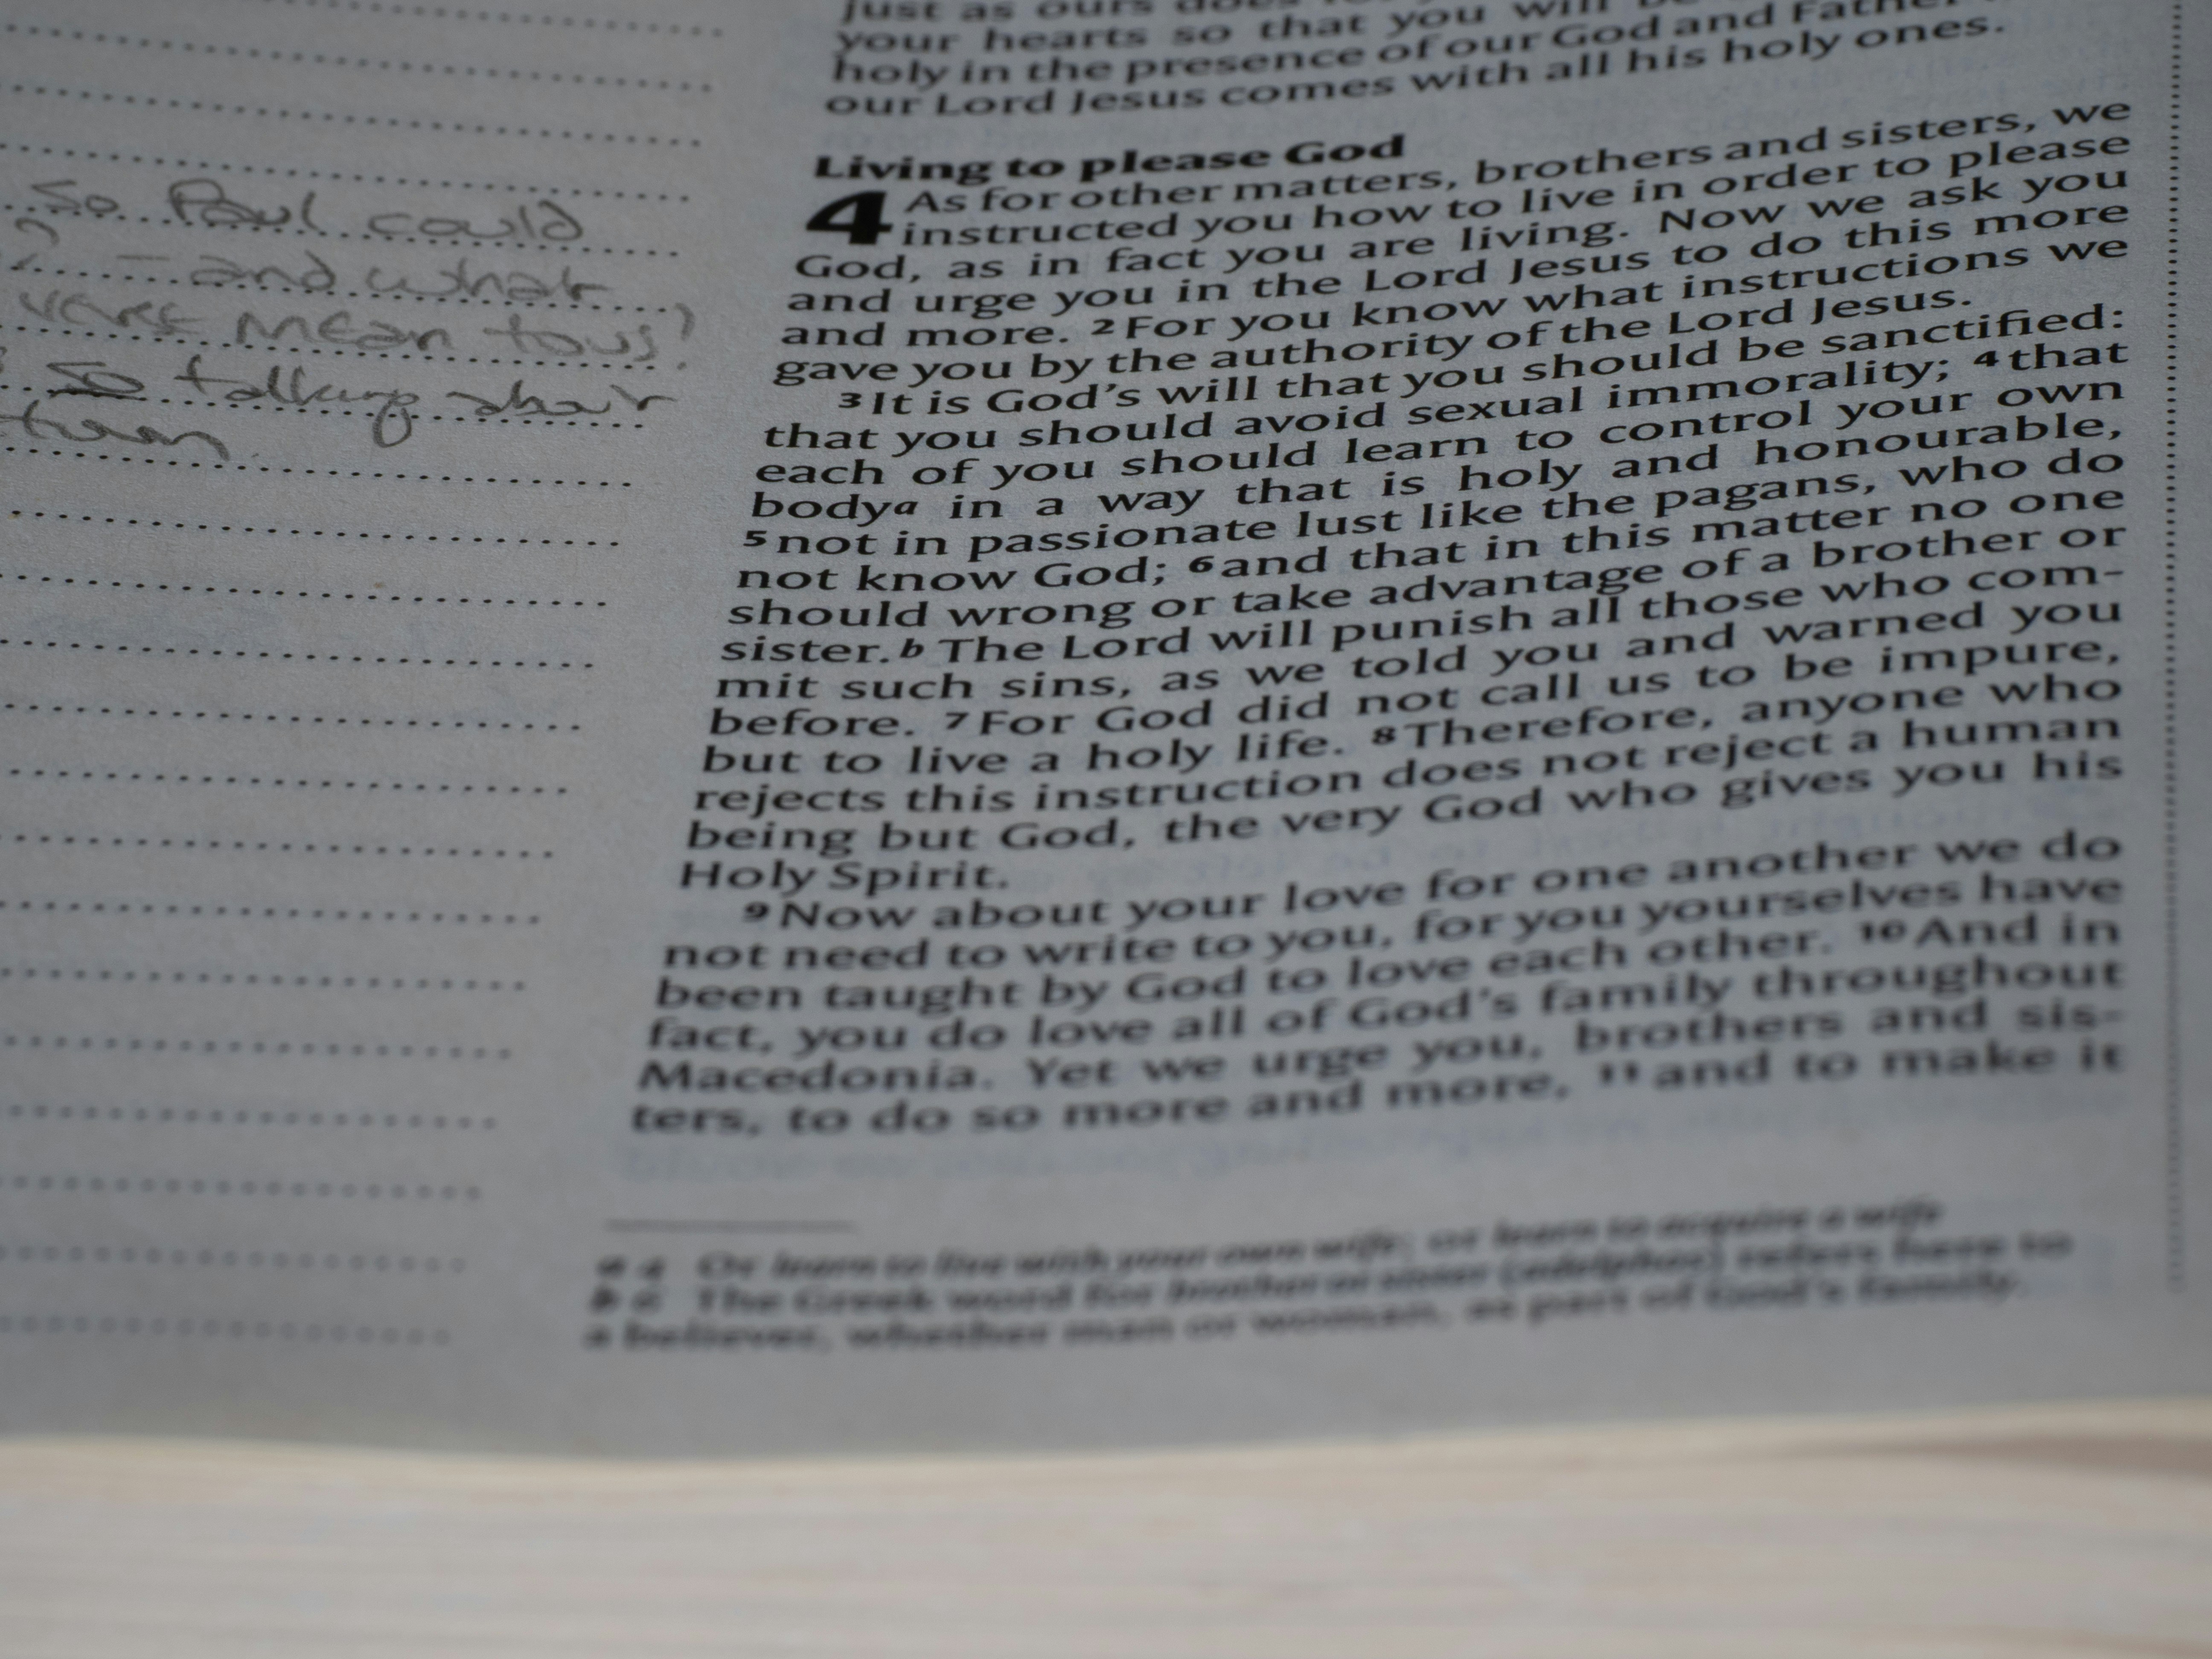 So Paul could
? - and what
verse mean to us?
so talking about
them
just as ours does
your hearts so that you will be
holy in the presence of our God and Father
our Lord Jesus comes with all his holy ones.
Living to please God
4 As for other matters, brothers and sisters, we
instructed you how to live in order to please
God, as in fact you are living. Now we ask you
and urge you in the Lord Jesus to do this more
and more. 2 For you know what instructions we
gave you by the authority of the Lord Jesus.
3 It is God's will that you should be sanctified:
that you should avoid sexual immorality; 4 that
each of you should learn to control your own
body a in a way that is holy and honourable,
5 not in passionate lust like the pagans, who do
not know God; 6 and that in this matter no one
should wrong or take advantage of a brother or
sister. b The Lord will punish all those who com-
mit such sins, as we told you and warned you
before. 7 For God did not call us to be impure,
but to live a holy life. 8 Therefore, anyone who
rejects this instruction does not reject a human
being but God, the very God who gives you his
Holy Spirit.
9 Now about your love for one another we do
not need to write to you, for you yourselves have
been taught by God to love each other. 10 And in
fact, you do love all of God's family throughout
Macedonia. Yet we urge you, brothers and sis-
ters, to do so more and more, 11 and to make it
a 4 Or learn to live with your own wife; or learn to acquire a wife
b 6 The Greek word for brother or sister (adelphos) refers here to
a believer, whether man or woman, as part of God's family.